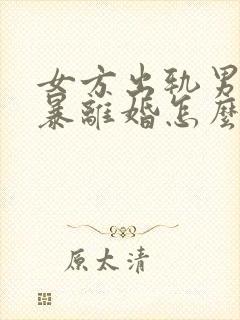 女方出轨男
暴離婚怎麼
原太清